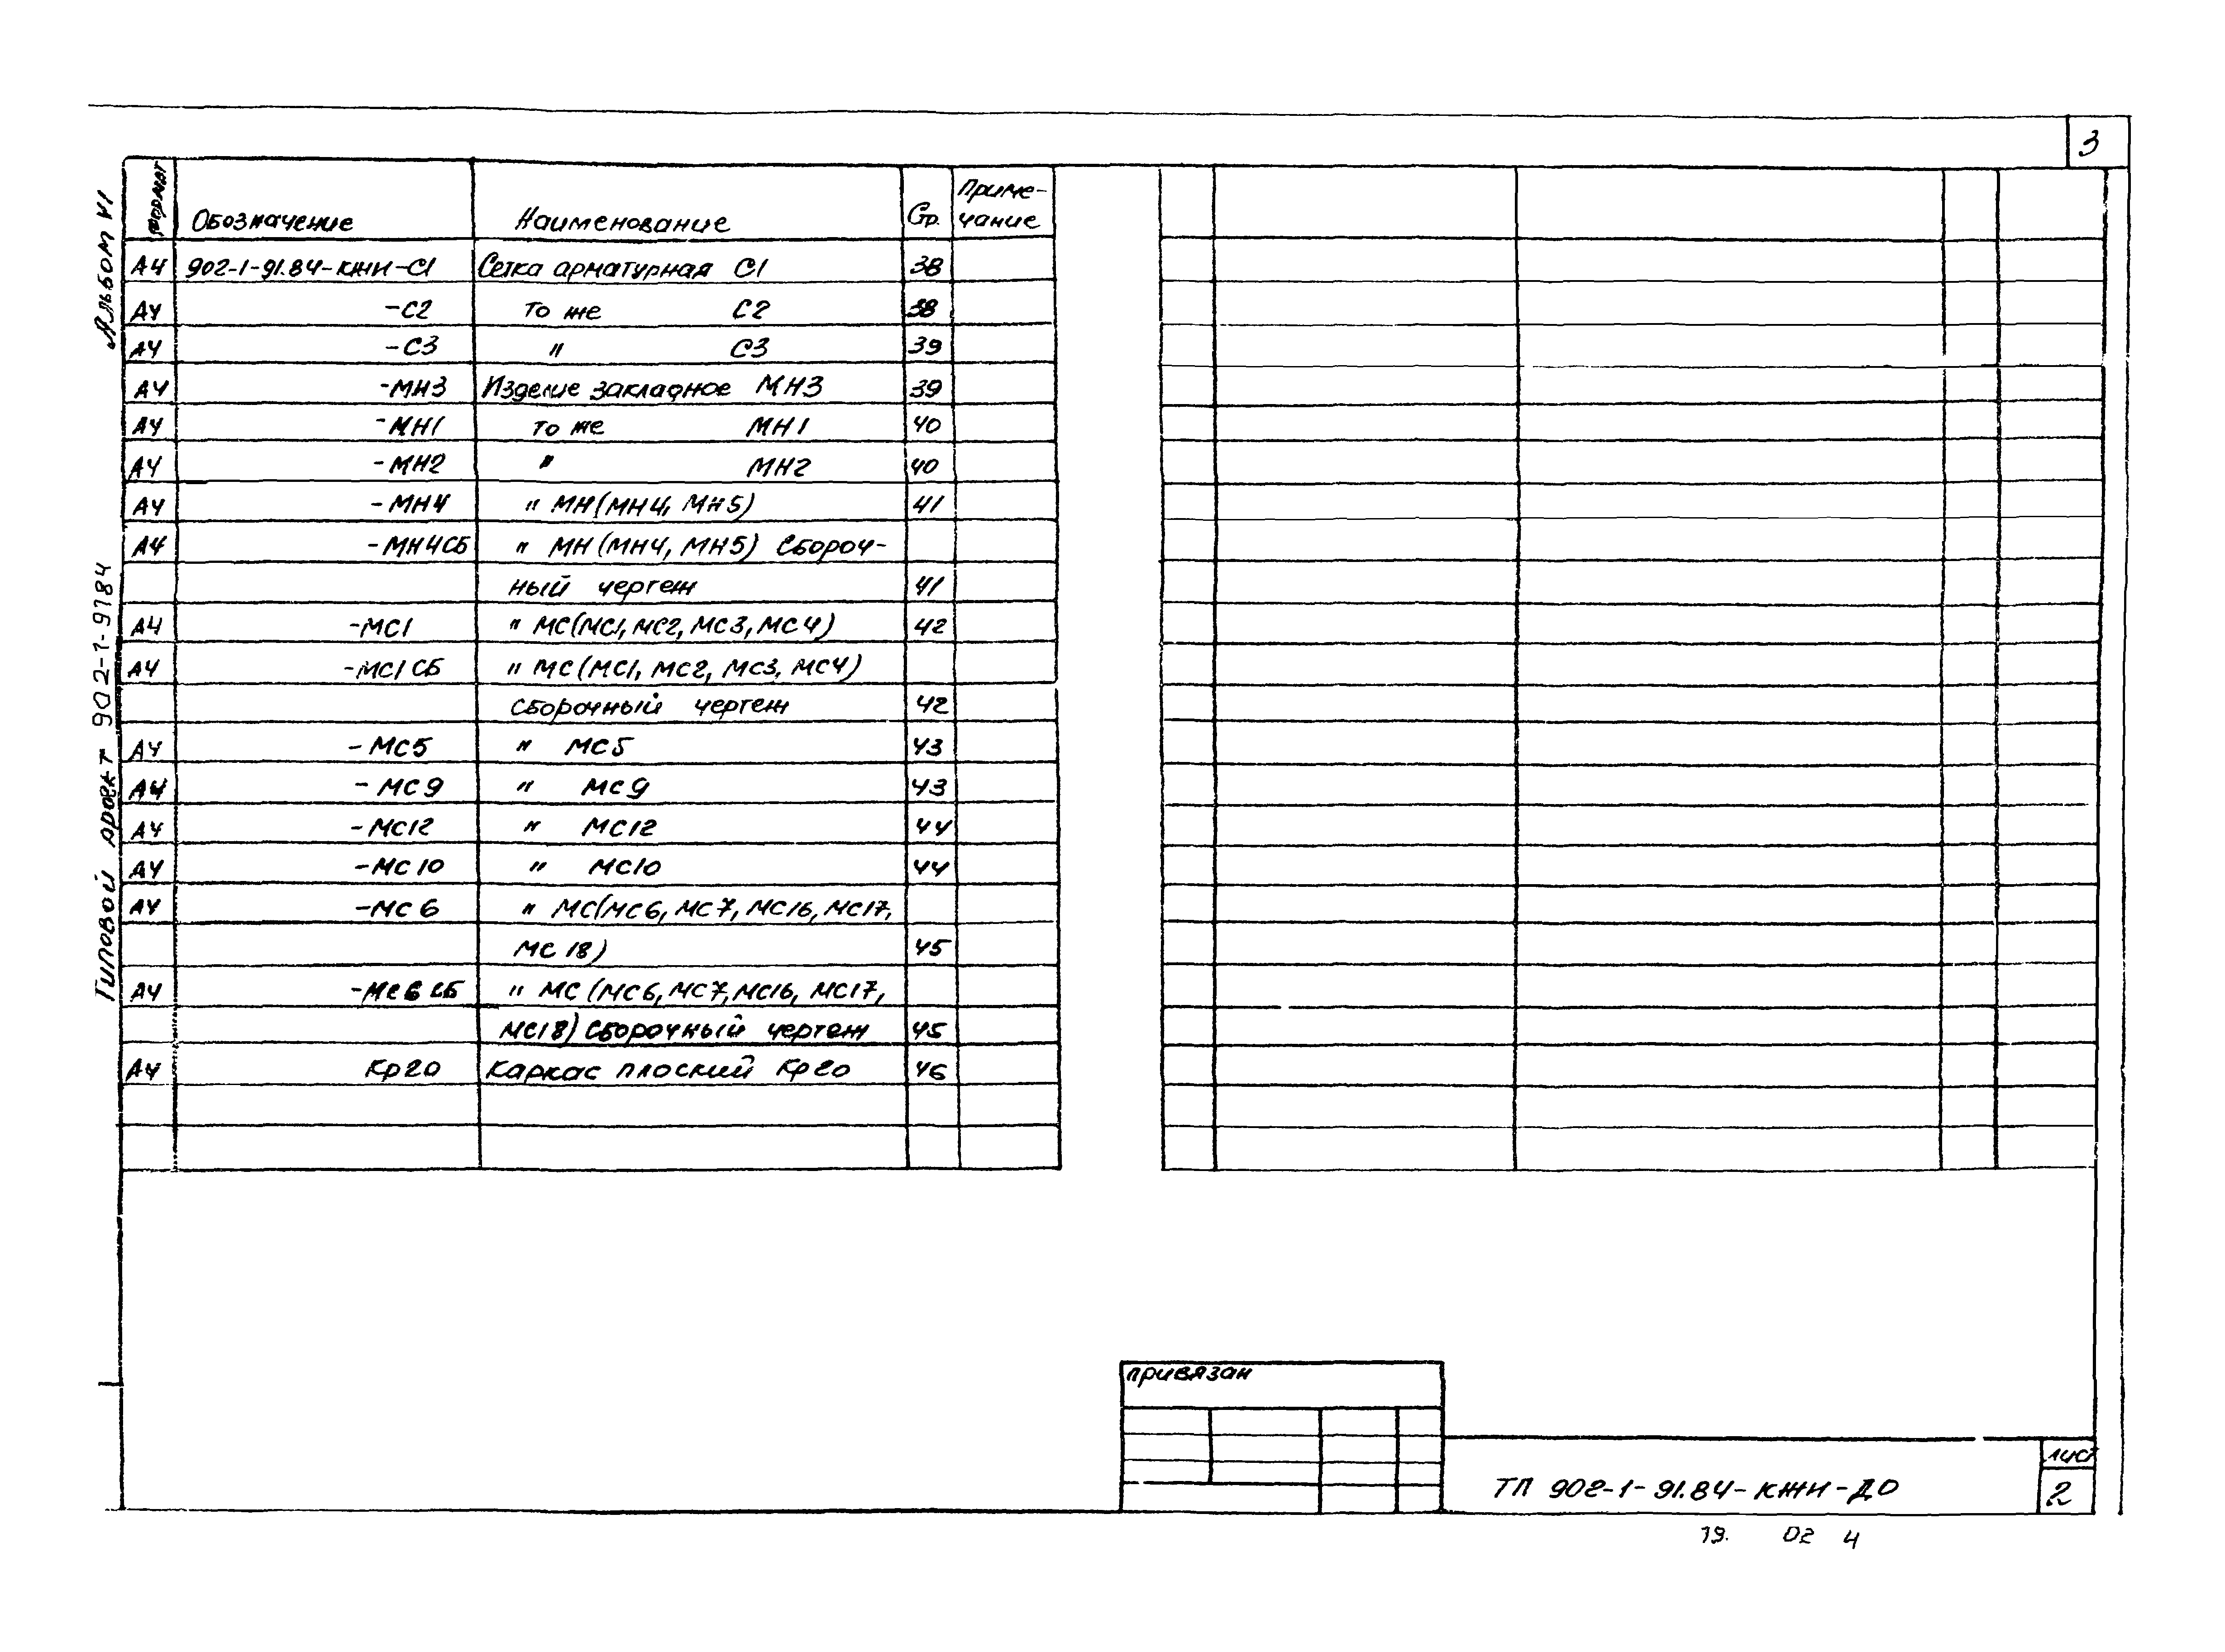 3
Альбом VI
Типовой проект 902-1-91.84
Формат Обозначение Наименование Стр. Приме-
чание
А4 902-1-91.84-КЖИ-С1 Сетка арматурная С1 38
А4 -С2 То же С2 38
А4 -С3 " С3 39
А4 -МН3 Изделие закладное МН3 39
А4 -МН1 То же МН1 40
А4 -МН2 " МН2 40
А4 -МН4 " МН(МН4, МН5) 41
А4 -МН4СБ " МН (МН4, МН5) Сбороч-
ный чертеж 41
А4 -МС1 " МС(МС1, МС2, МС3, МС4) 42
А4 -МС1СБ " МС (МС1, МС2, МС3, МС4)
сборочный чертеж 42
А4 -МС5 " МС5 43
А4 -МС9 " МС9 43
А4 -МС12 " МС12 44
А4 -МС10 " МС10 44
А4 -МС6 " МС(МС6, МС7, МС16, МС17,
МС18) 45
А4 -МС6СБ " МС (МС6, МС7, МС16, МС17,
МС18) Сборочный чертеж 45
А4 Кр20 Каркас плоский Кр20 46
привязан
ТП 902-1-91.84-КЖИ-ДО
лист
2
19. 02 4